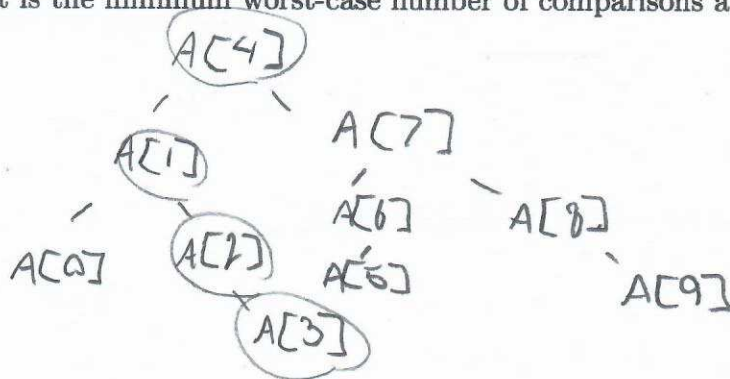 t is the minimum worst-case number of comparisons a
A[4]
A[1] A[7]
A[0] A[2] A[6] A[8]
A[3] A[5] A[9]